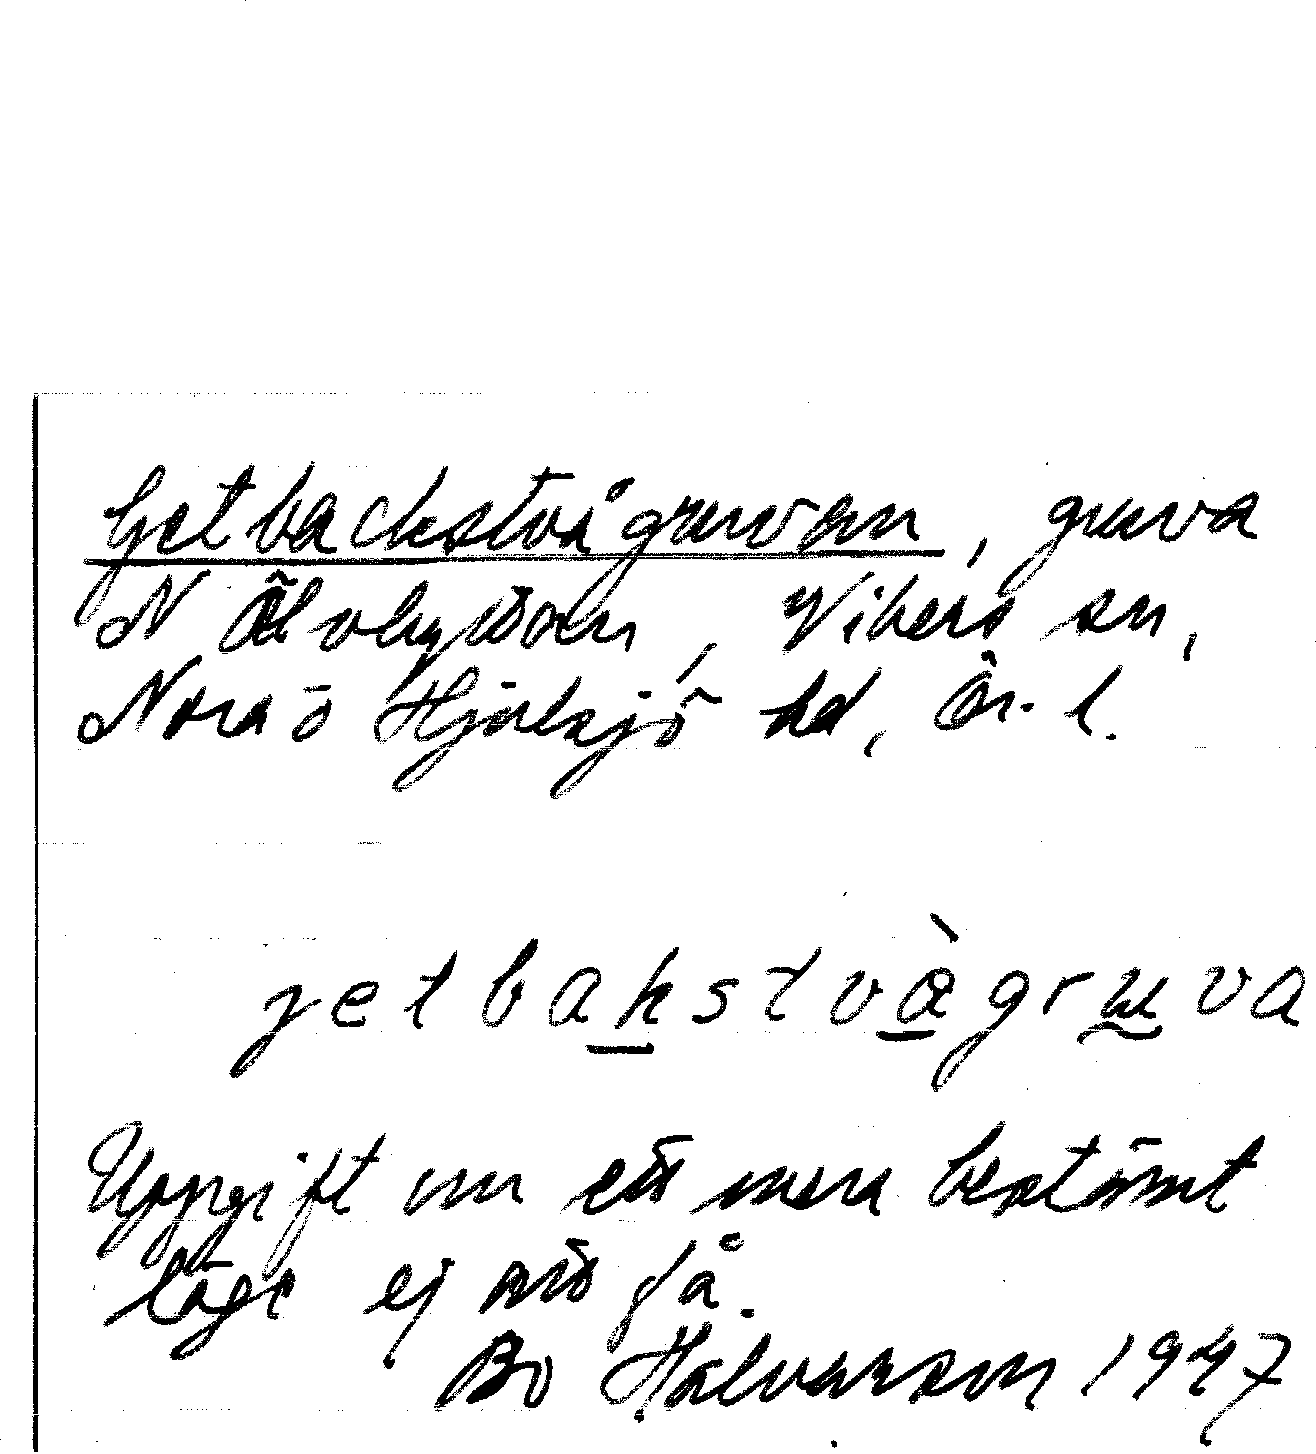 Getbackstvågruvan, gruva
N Älvhyttan, Vikers sn,
Nora o Hjulsjö hd, Ör. l.
jetbakstvågruva
Uppgift om ett mera bestämt
läge ej att få.
Bo Halvarson 1947